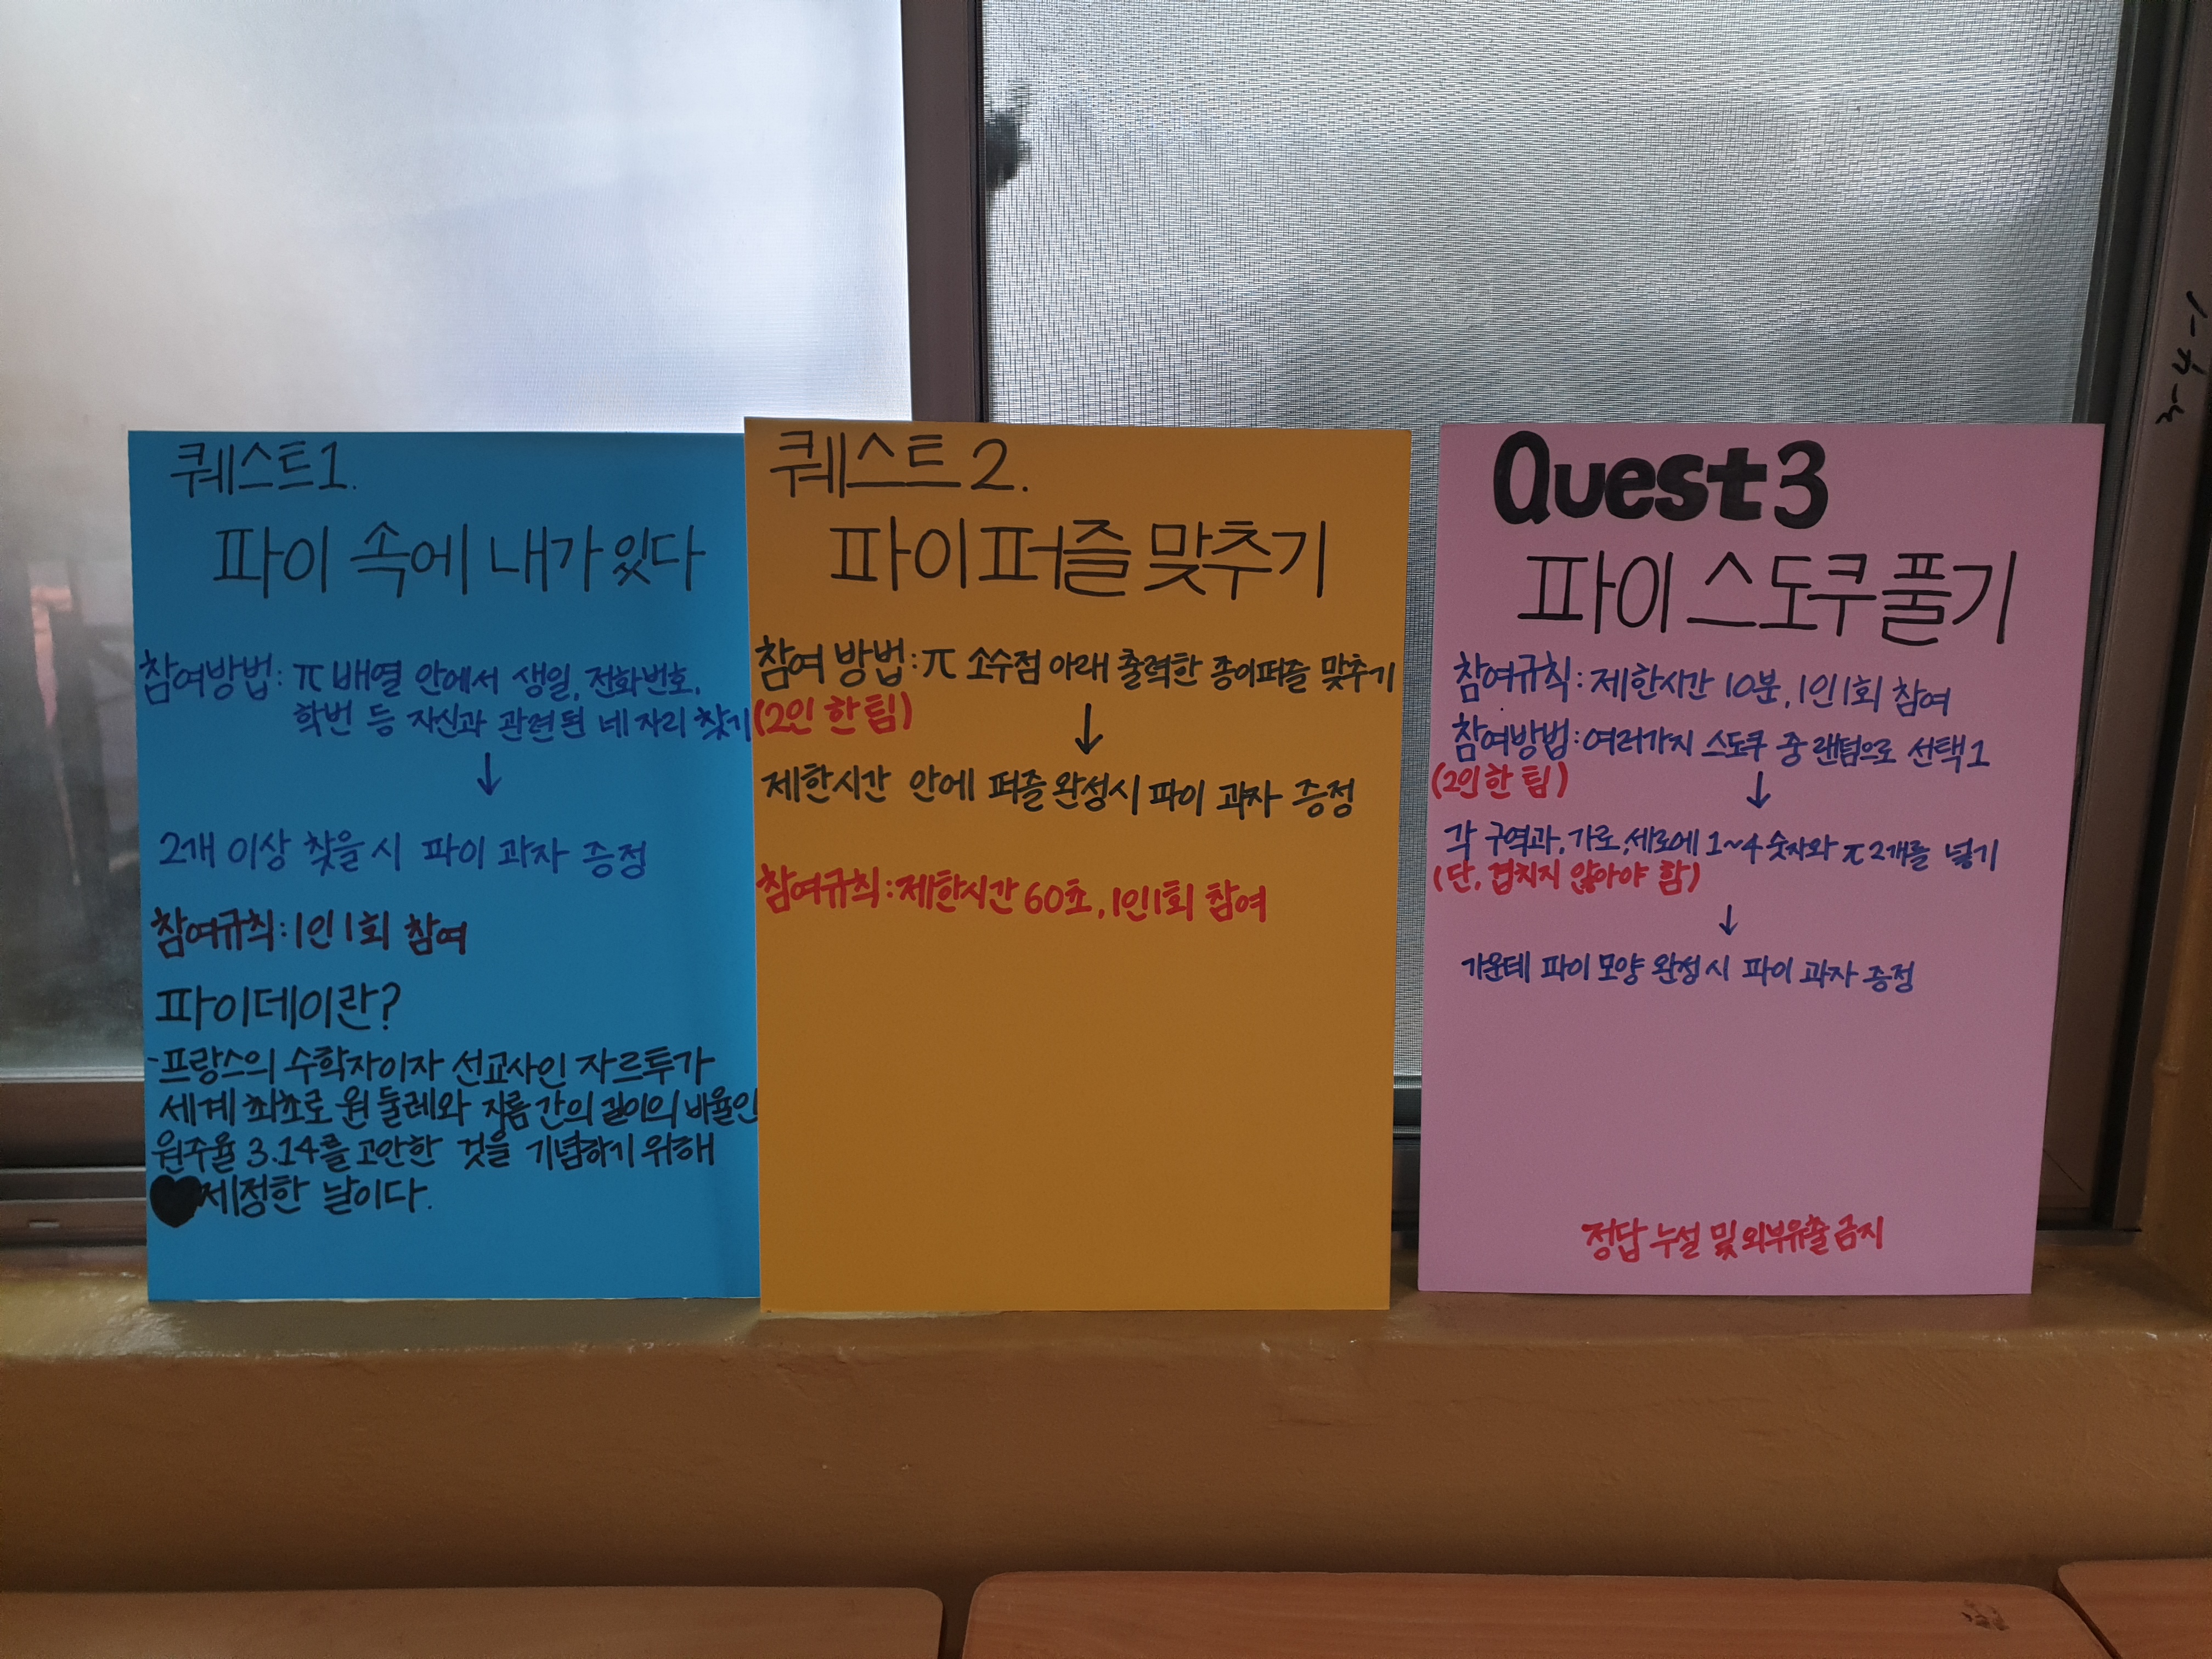 퀘스트1.
파이 속에 내가 있다
참여방법: π 배열 안에서 생일, 전화번호,
학번 등 자신과 관련된 네자리 찾기
↓
2개 이상 찾을 시 파이 과자 증정
참여규칙: 1인 1회 참여
파이데이란?
-프랑스의 수학자이자 선교사인 자르투가
세계 최초로 원 둘레와 지름 간의 길이의 비율인
원주율 3.14를 고안한 것을 기념하기 위해
♥제정한 날이다.
퀘스트2.
파이퍼즐 맞추기
참여 방법: π 소수점 아래 출력한 종이퍼즐 맞추기
(2인 한 팀)
↓
제한시간 안에 퍼즐 완성시 파이 과자 증정
참여규칙: 제한시간 60초, 1인1회 참여
Quest3
파이 스도쿠 풀기
참여규칙: 제한시간 10분, 1인1회 참여
참여방법: 여러가지 스도쿠 중 랜덤으로 선택1
(2인 한 팀)
↓
각 구역과, 가로, 세로에 1~4 숫자와 π 2개를 넣기
(단, 겹치지 않아야 함)
↓
가운데 파이 모양 완성 시 파이 과자 증정
정답 누설 및 외부유출 금지